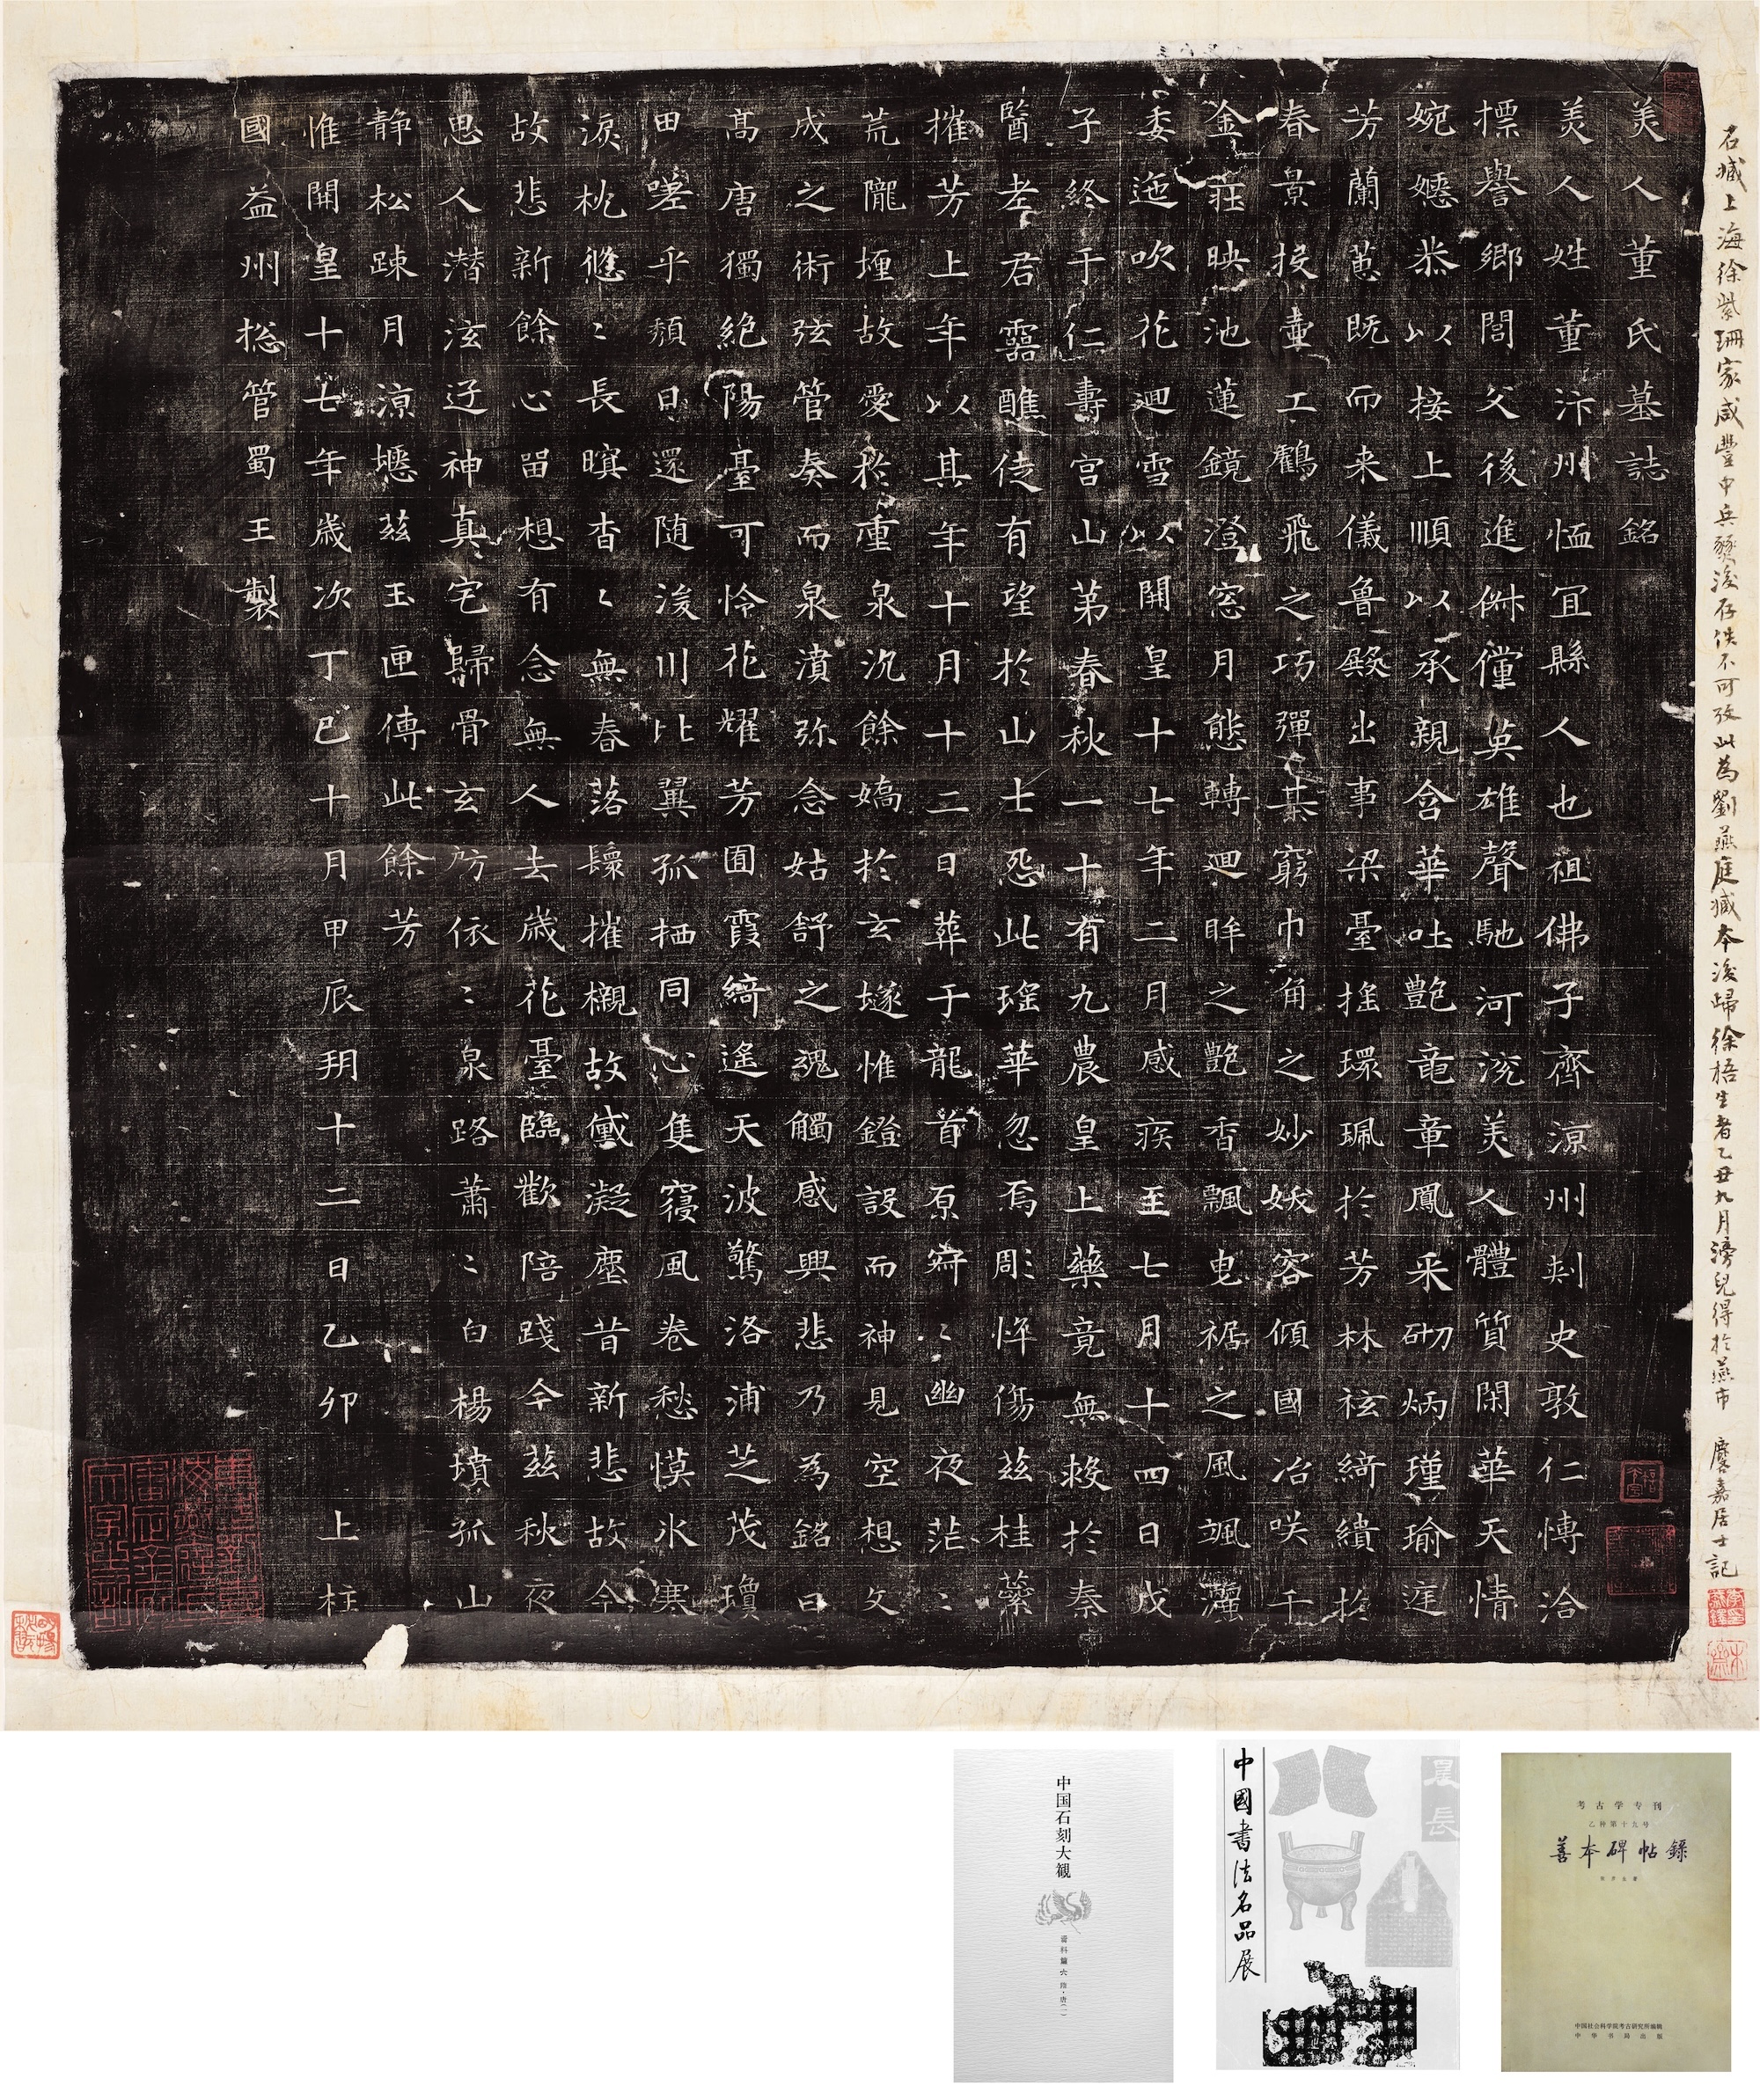 石臧上海徐紫珊家咸豐中兵燹後存佚不可攷此為劉燕庭臧本後歸徐梧生者乙丑九月滂兒得於燕市 麐嘉居士記
美人董氏墓誌銘
美人姓董汴州恤宜縣人也祖佛子齊涼州刾史敦仁愽洽
摽譽鄉閭父後進俶儻英雄聲馳河渷美人體質閑華天情
婉嫕恭以接上順以承親含華吐艷竜章鳳采砌炳瑾瑜庭
芳蘭蕙既而来儀魯殿出事梁臺搖環珮於芳林袨綺繢於
春景投壷工鶴飛之巧彈棊窮巾角之妙妖容傾國冶咲千
金莊映池蓮鏡澄窓月態轉迴眸之艷香飄曳裾之風颯灑
委迤吹花迴雪以開皇十七年二月感疾至七月十四日戊
子終于仁壽宮山第春秋一十有九農皇上藥竟無救於秦
醫老君靈醮徒有望於山士怨此瑤華忽焉彫悴傷茲桂蘂
摧芳上年以其年十月十二日葬于龍首原寂〻幽夜茫〻
荒隴埋故愛於重泉沉餘嬌於玄隧惟鐙設而神見空想文
成之術弦管奏而泉濆弥念姑舒之魂觸感興悲乃為銘曰
高唐獨絕陽臺可怜花耀芳囿霞綺遙天波驚洛浦芝茂瓊
田嗟乎頹日還随浚川比翼孤栖同心隻寢風卷愁慔氷寒
淚枕悠〻長暝杳〻無春落鬟摧櫬故黛凝塵昔新悲故今
故悲新餘心留想有念無人去歲花臺臨歡陪踐今茲秋夜
思人潛泫迓神真宅歸骨玄房依〻泉路蕭〻白楊墳孤山
静松踈月涼壥茲玉匣傳此餘芳
惟開皇十七年歲次丁巳十月甲辰朔十二日乙卯上柱
國益州総管蜀王製
中国石刻大観
齋科篇六 隋・唐(一)
中國書法名品展
考古学专刊
乙种第十九号
善本碑帖錄
中国社会科学院考古研究所编辑
中华书局出版